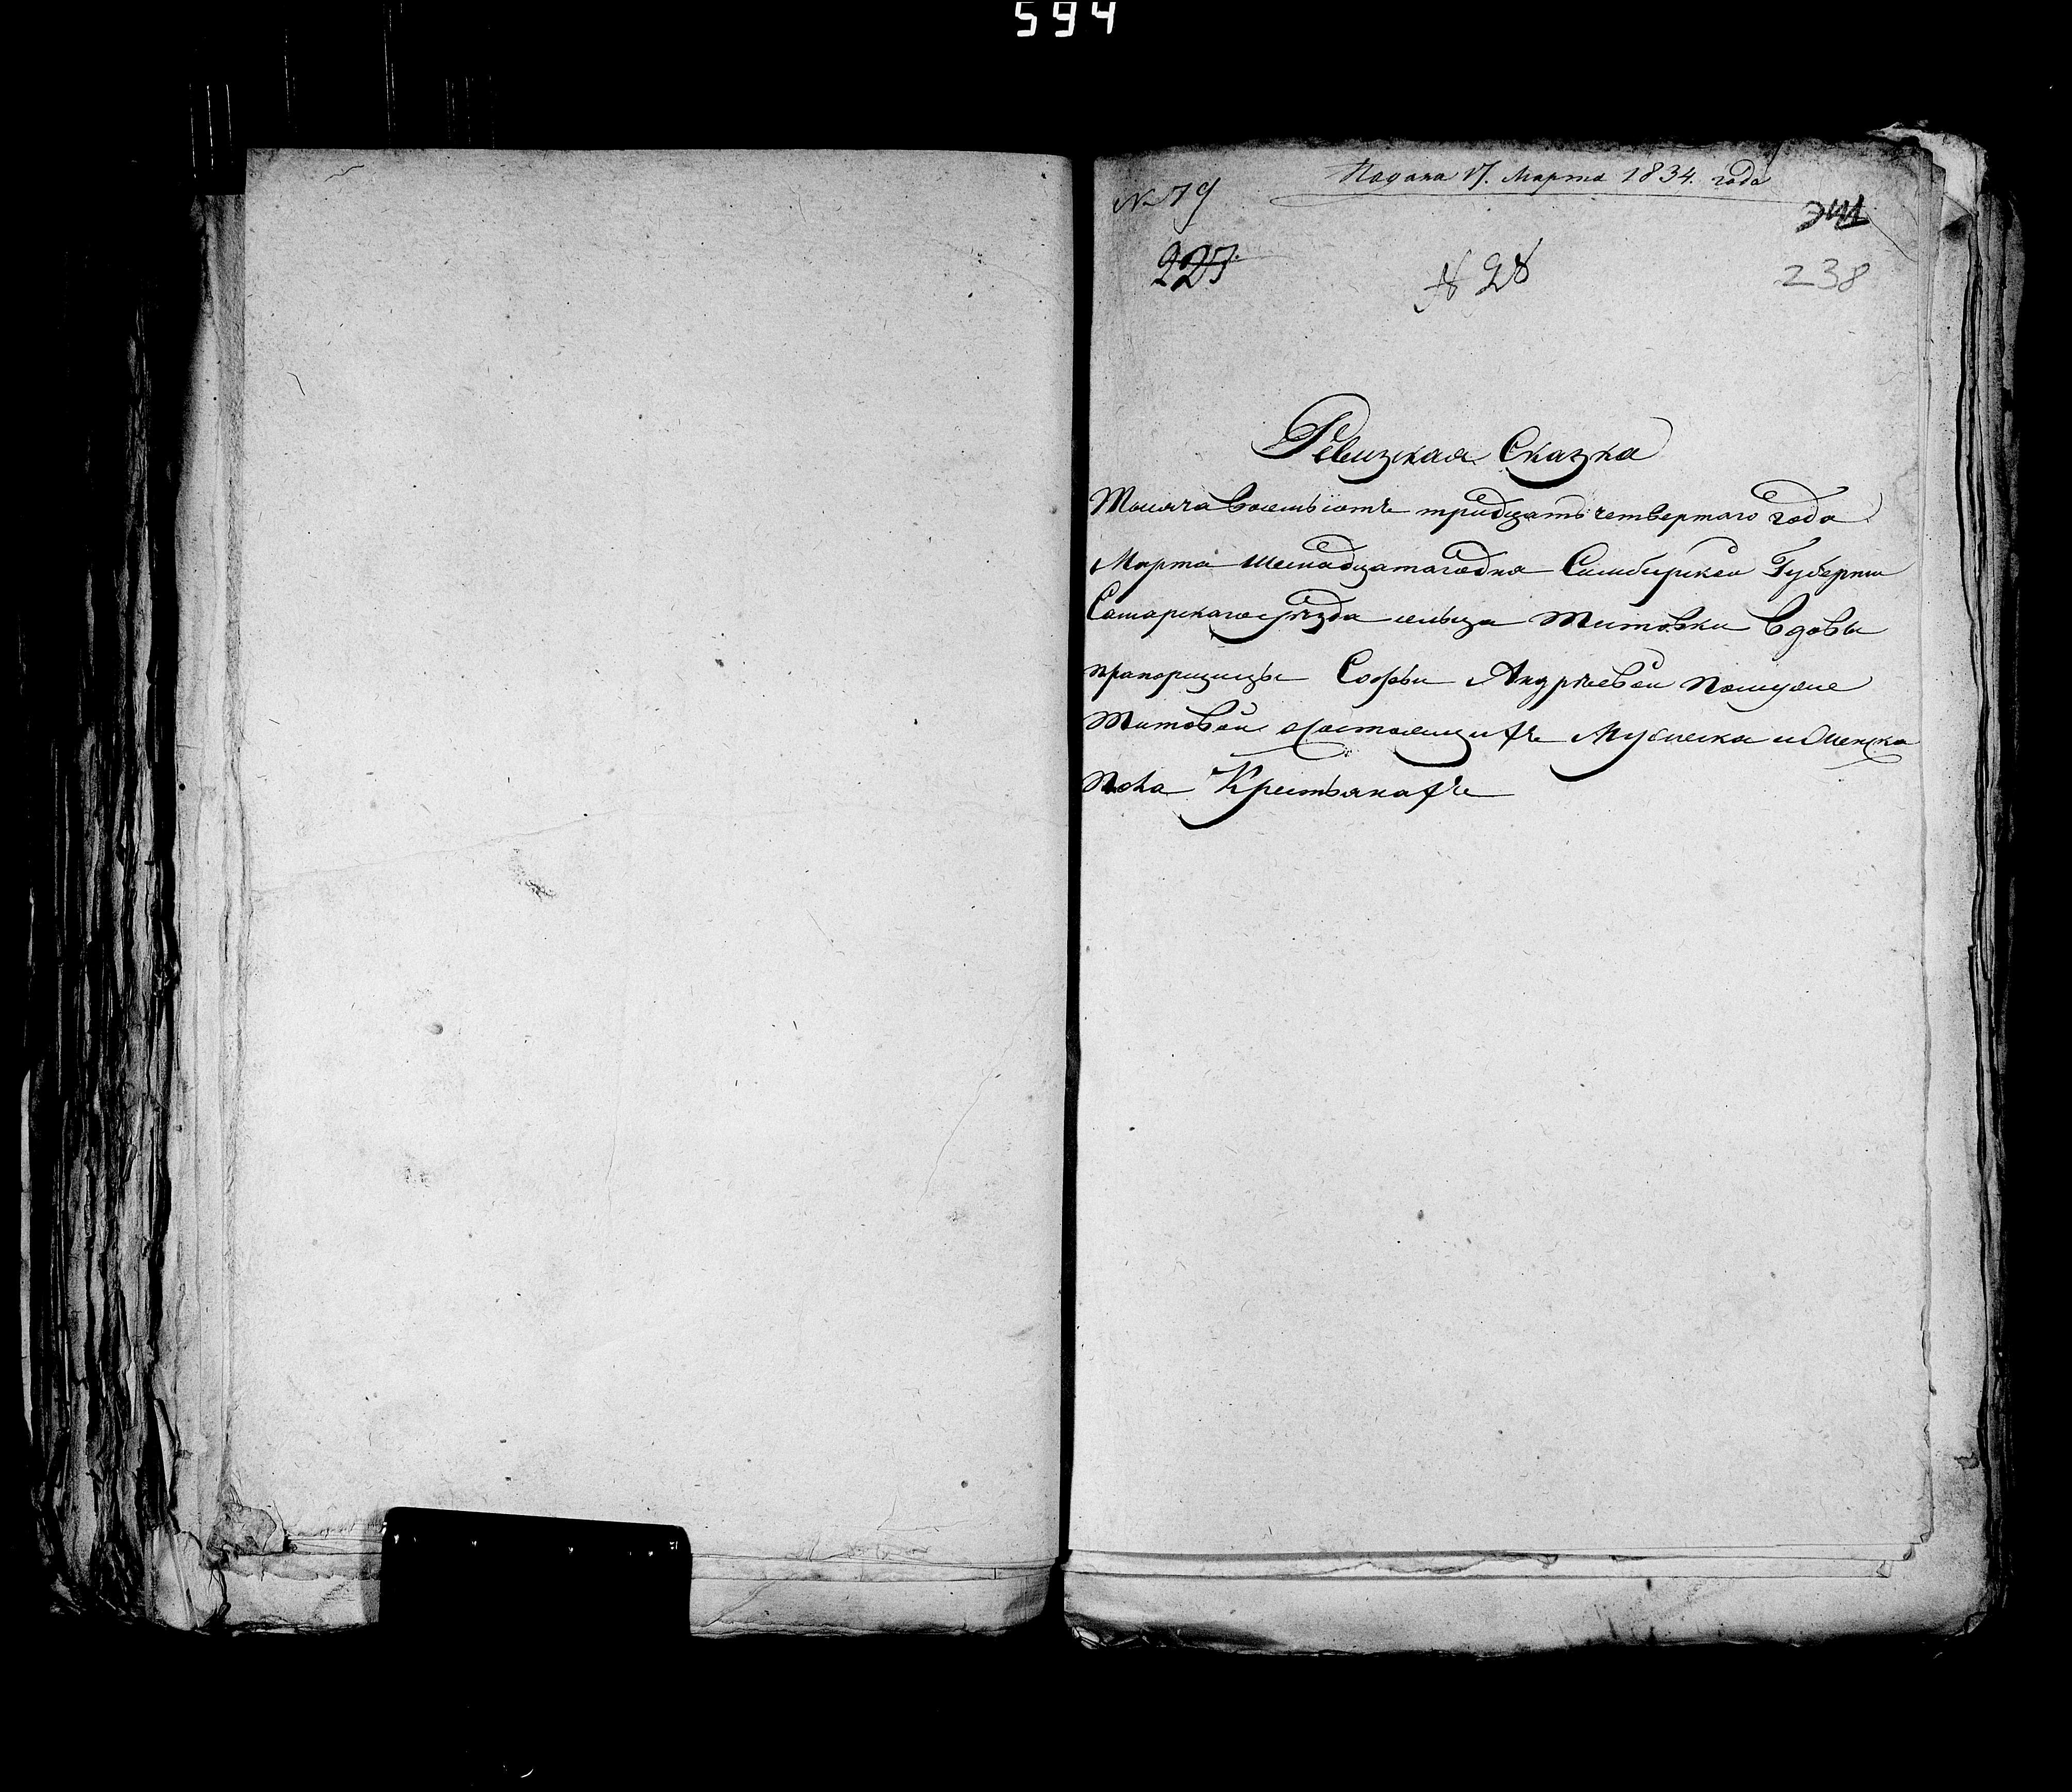 594
Подана 17. Марта 1834. года
№ 79
227.
№ 28
238
Ревизкая Сказка
Тысяча восемьсотъ тридцать четвертаго года
Марта шеснадцатагодня Симбирской Губернии
Самарскагоуѣзда сельца Титовки вдовы
прапорщицы Софьи Андрѣевой
Титовой осостоящихъ Мускеска иЖенска
Пола Крестьянахъ